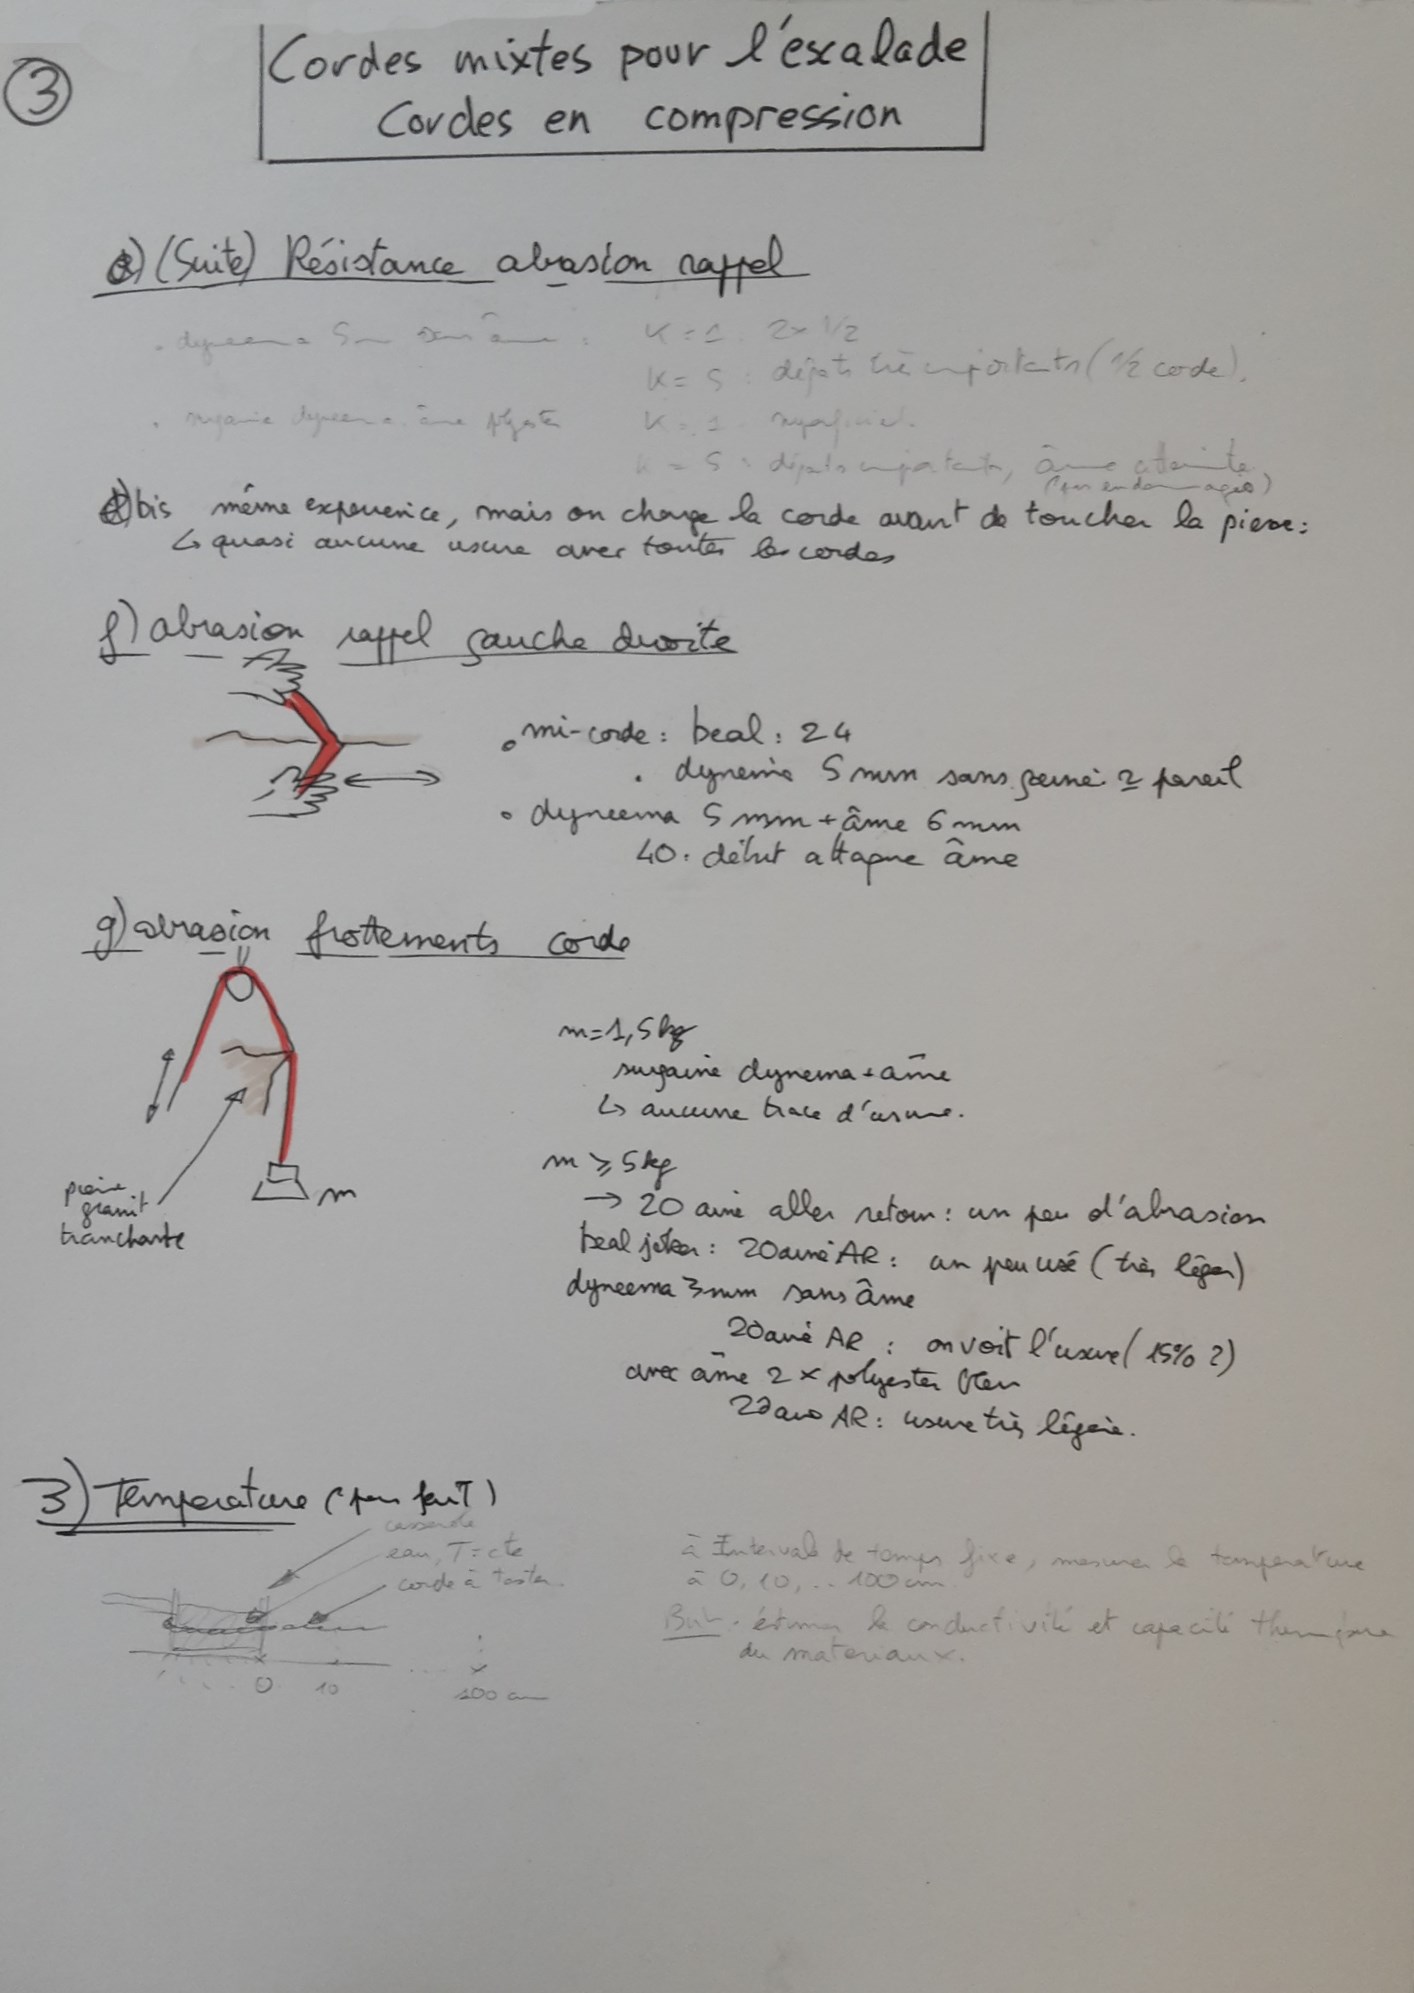 3
Cordes mixtes pour l'escalade
Cordes en compression
e) (Suite) Résistance abrasion rappel
. dyneema 5mm sans âme : K = 1 : 2 x 1/2
K = 5 : dégats très importants (1/2 corde).
. surgaine dyneema âme polyester K = 1 superficiel.
K = 5 : dégats importants, âme atteinte
(pas endommagée)
bis même experience, mais on charge la corde avant de toucher la pierre :
↳ quasi aucune usure avec toutes les cordes
f) abrasion rappel gauche droite
• mi-corde : beal : 24
. dyneema 5 mm sans ≃ pareil
• dyneema 5 mm + âme 6 mm
40. début attaque âme
g) abrasion frottements corde
m=1,5kg
surgaine dynema + âme
↳ aucune trace d'usure.
m ⩾ 5kg
→ 20 aller retour : un peu d'abrasion
beal joker : 20 AR : un peu usé (très léger)
dyneema 3mm sans âme
20 AR : on voit l'usure (15% ?)
avec âme 2 x polyester
20 AR : usure très légère.
m
pierre
granit
tranchante
3) Temperature (pas fait)
casserole
eau, T = cte
corde à tester.
0 10 .... 100 cm
à Intervale de temps fixe, mesurer la temperature
à 0, 10, .. 100 cm.
But : estimer la conductivité et capacité thermique
du materiaux.